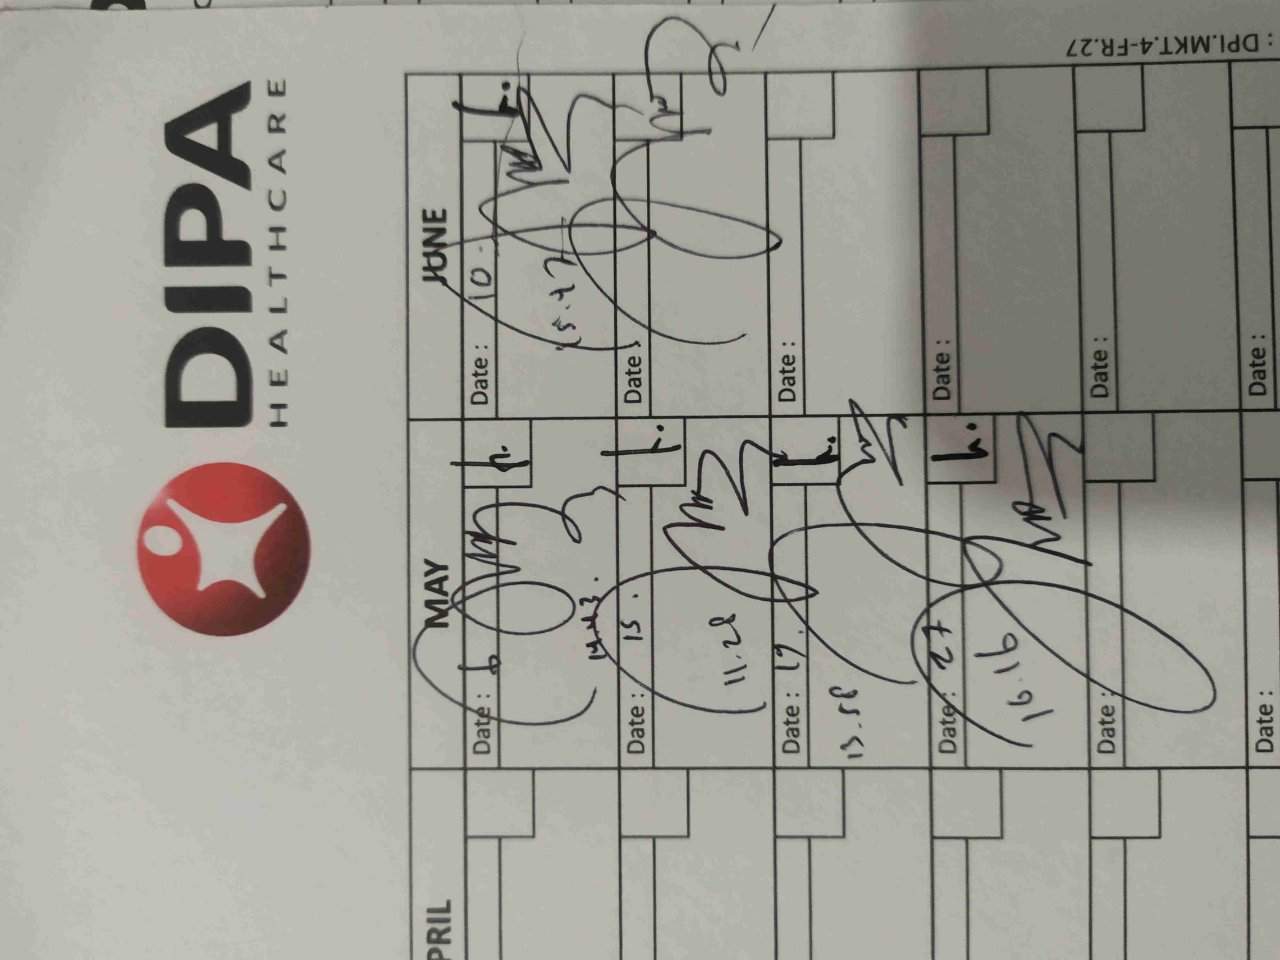 DIPA
HEALTHCARE
: DPI.MKT.4-FR.27
PRIL
MAY
JUNE
Date : 6
14.43.
Date : 10.
15.47
Date : 15.
11.28
Date :
Date : 19.
13.58
Date :
Date : 27
16.16
Date :
Date :
Date :
Date :
Date :